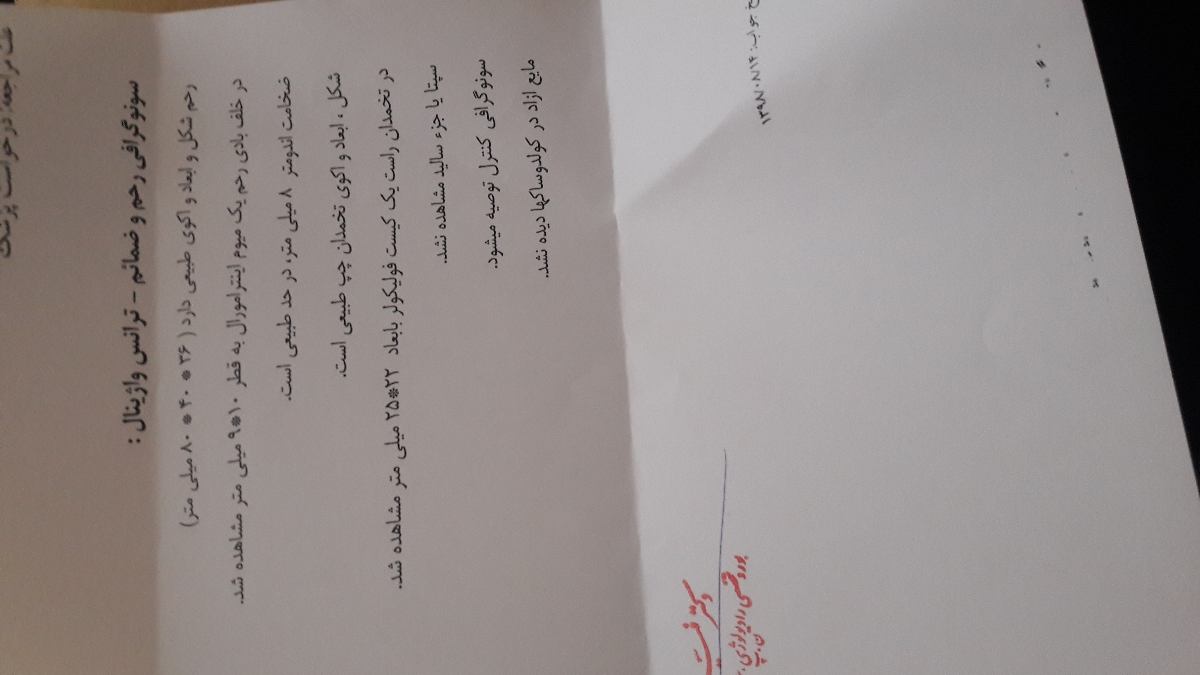 علت مراجعه: درخواست پزشک
سونوگرافی رحم و ضمائم - ترانس واژینال :
رحم شکل و ابعاد و اکوی طبیعی دارد ( ۳۶ * ۴۰ * ۸۰ میلی متر)
در خلف بادی رحم یک میوم اینترامورال به قطر ۱۰*۹ میلی متر مشاهده شد.
ضخامت اندومتر ۸ میلی متر، در حد طبیعی است.
شکل ، ابعاد و اکوی تخمدان چپ طبیعی است.
در تخمدان راست یک کیست فولیکولر بابعاد ۲۲*۲۵ میلی متر مشاهده شد.
سپتا یا جزء سالید مشاهده نشد.
سونوگرافی کنترل توصیه میشود.
مایع ازاد در کولدوساکها دیده نشد.
جواب: ۱۳۹۸/۰۸/۱۴
دکتر
بورد تخصصی رادیولوژی